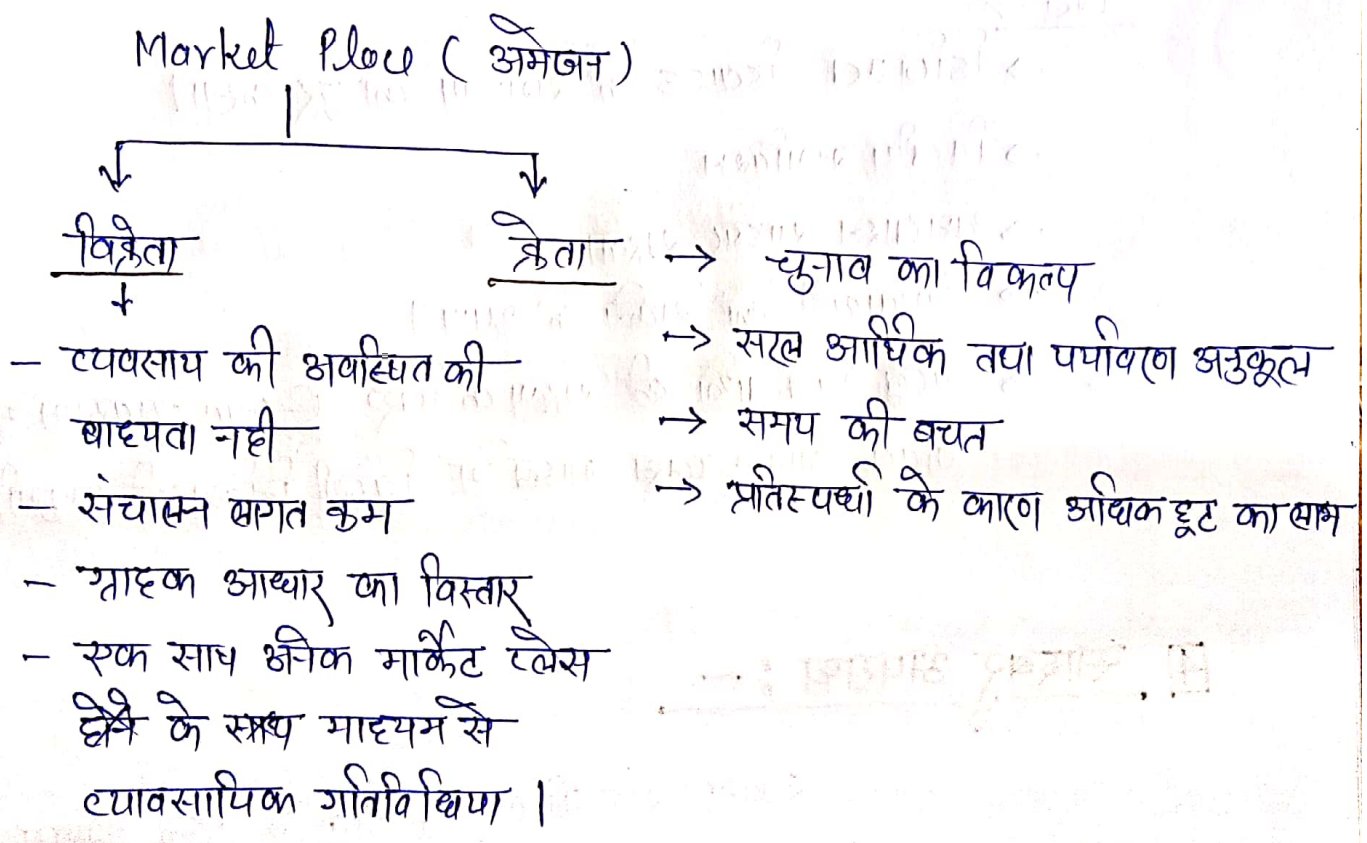 Market Place (अमेजन)
विक्रेता
- व्यवसाय की अवस्थित की
बाध्यता नही
- संचालन लागत कम
- ग्राहक आधार का विस्तार
- एक साथ अनेक मार्केट प्लेस
के माध्यम से
व्यावसायिक गतिविधिया |
क्रेता → चुनाव का विकल्प
→ सरल आर्थिक तथा पर्यावरण अनुकूल
→ समय की बचत
→ प्रतिस्पर्धा के कारण अधिक छूट का लाभ